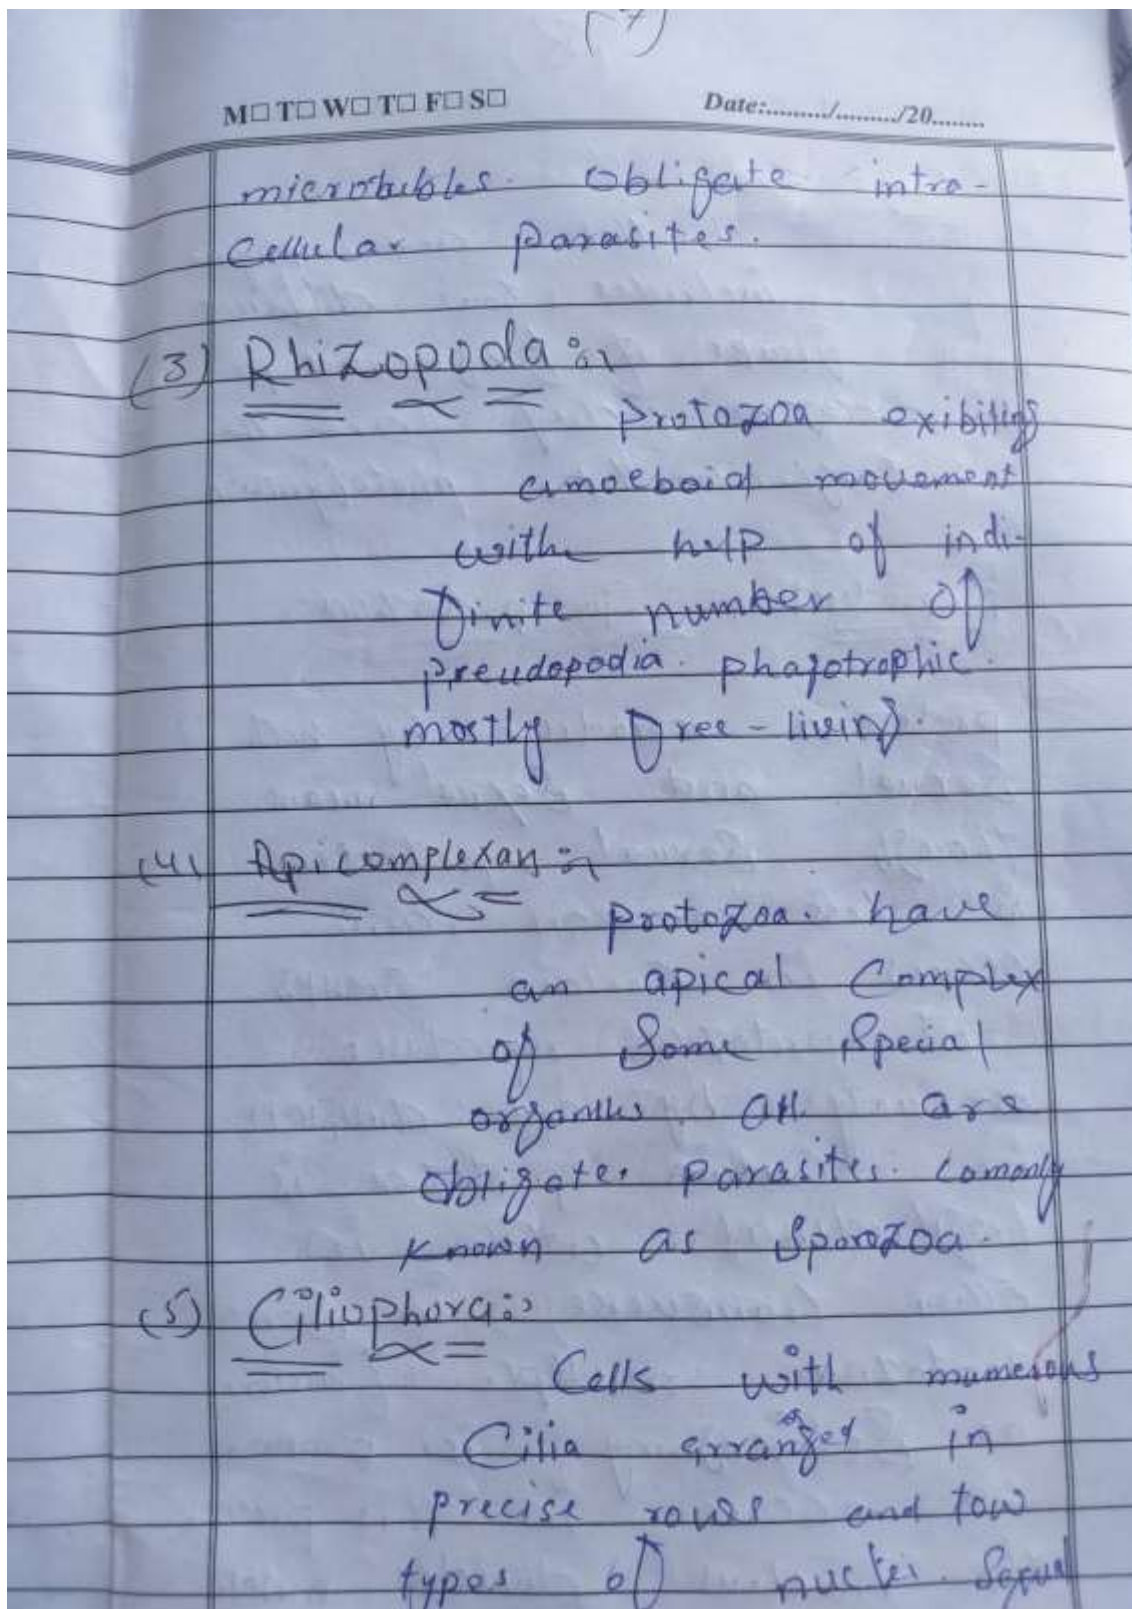 (7)
M□ T□ W□ T□ F□ S□ Date:........./........./20.........
microtubles. Obligate intra-
Cellular Parasites.
(3) Rhizopoda :
Protozoa exibiting
amoeboid movement
with help of indi-
finite number of
Pseudopodia. phagotrophic.
mostly free-living.
(4) Apicomplexan :
Protozoa. have
an apical Complex
of Some Special
organlles All are
obligate. Parasites. Comonly
known as Sporozoa.
(5) Ciliophora :
Cells with numerous
Cilia arranged in
precise rows and tow
types of nuclei.